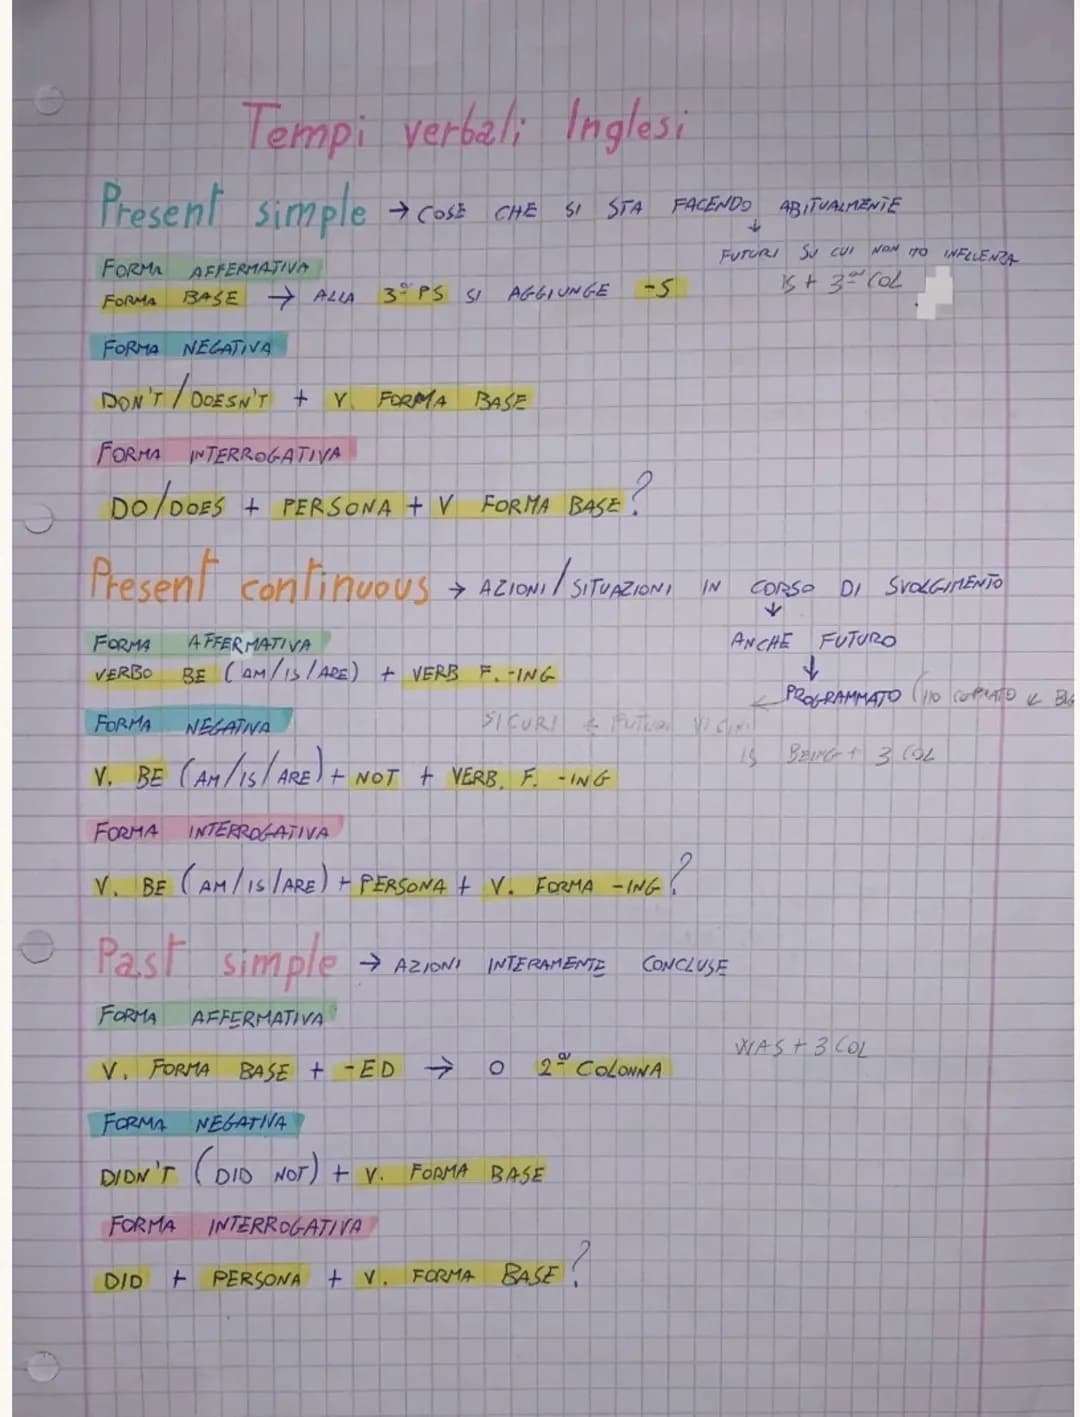 Tempi verbali Inglesi
Present simple → COSE CHE SI STA FACENDO ABITUALMENTE
↓
FUTURI SU CUI NON HO INFLUENZA
FORMA AFFERMATIVA
IS + 3ª COL
FORMA BASE → ALLA 3ª PS SI AGGIUNGE -S
FORMA NEGATIVA
DON'T/DOESN'T + V. FORMA BASE
FORMA INTERROGATIVA
DO/DOES + PERSONA + V FORMA BASE?
Present continuous → AZIONI/SITUAZIONI IN CORSO DI SVOLGIMENTO
↓
FORMA AFFERMATIVA
ANCHE FUTURO
↓
VERBO BE (AM/IS/ARE) + VERB F. -ING
PROGRAMMATO (HO
FORMA NEGATIVA
SICURI E FUTURI VICINI
IS BEING + 3 COL
V. BE (AM/IS/ARE) + NOT + VERB. F. -ING
FORMA INTERROGATIVA
V. BE (AM/IS/ARE) + PERSONA + V. FORMA -ING?
Past simple → AZIONI INTERAMENTE CONCLUSE
FORMA AFFERMATIVA
WAS + 3 COL
V. FORMA BASE + -ED → O 2ª COLONNA
FORMA NEGATIVA
DIDN'T (DID NOT) + V. FORMA BASE
FORMA INTERROGATIVA
DID + PERSONA + V. FORMA BASE?